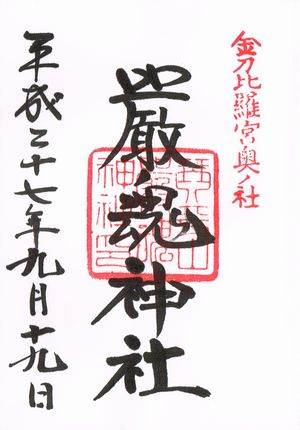 金刀比羅宮奥ノ社
嚴魂神社
平成二十七年九月十九日